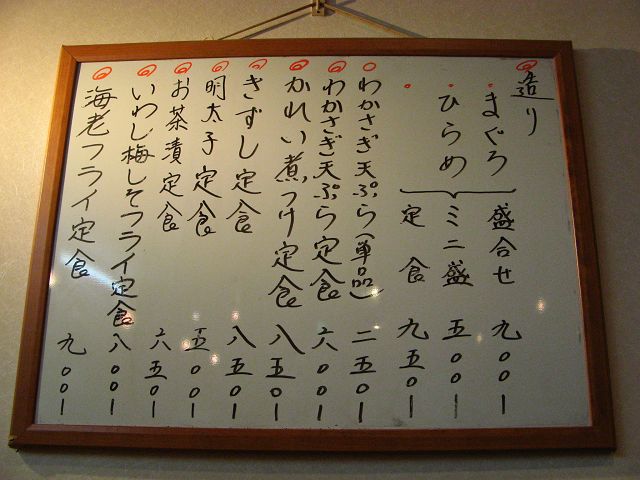 造り
まぐろ 盛合せ 九〇〇ー
ひらめ ミニ盛 五〇〇ー
定食 九五〇ー
わかさぎ天ぷら(単品) 二五〇ー
わかさぎ天ぷら定食 六〇〇ー
かれい煮つけ定食 八五〇ー
きずし定食 八五〇ー
明太子定食 五〇〇ー
お茶漬定食 六五〇ー
いわし梅しそフライ定食 八〇〇ー
海老フライ定食 九〇〇ー